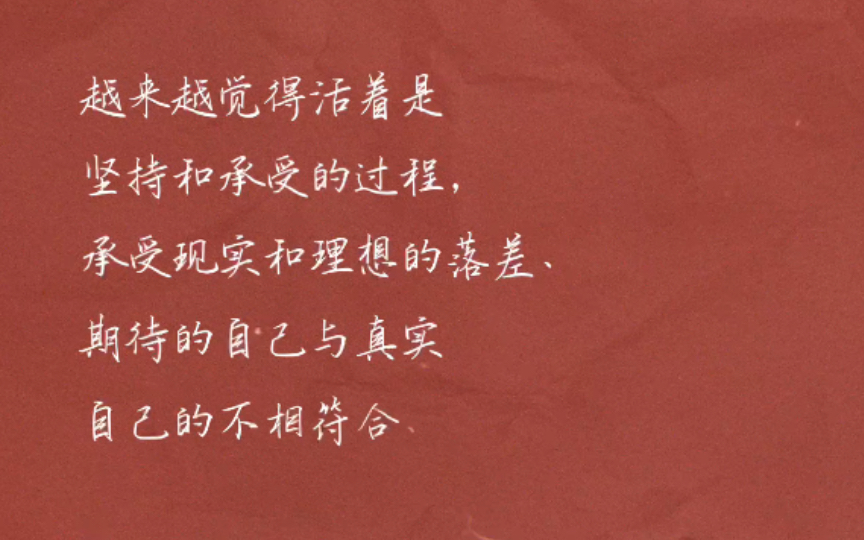 越来越觉得活着是
坚持和承受的过程，
承受现实和理想的落差、
期待的自己与真实
自己的不相符合、